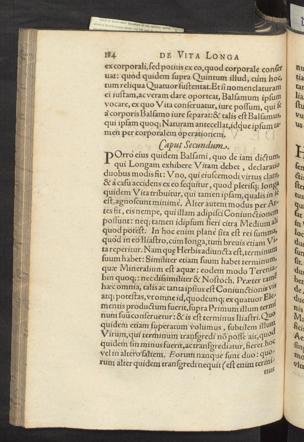 184 DE VITA LONGA
ex corporali, sed potius ex eo, quod corporale conser
uat: quòd quidem supra Quintum illud, cum hoc,
tum reliqua Quatuor sustentat. Et si nomenclaturam
ei iustam, ac veram dare oporteat, Balsamum ipsum
vocare, ex quo Vita conseruatur, iure possum, qui se
à corporis Balsamo iure separat: & talis est Balsamus
qui ipsam quoq; Naturam antecellat, idque ipsum ta-
men per corporalem operationem.
Caput Secundum.
POrrò eius quidem Balsami, quo de iam dictum,
qui Longam exhibere Vitam debet, declaratio
duobus modis fit: Vno, qui eiuscemodi virtus clam,
& à casu accidens ex eo sequitur, quod plerisq; longa
quidem Vita tribuitur, qui tamen ipsum, qualis in se
est, agnoscunt minimè. Alter autem modus per Ar-
tes fit, eis nempe, qui illam adipisci Coniunctionem
possunt: neq; tamen idipsum fieri citra Medium
quod potest. In hoc enim planè sita est res summa,
quòd in eo Iliastro, cum longa, tum breuis etiam Vi-
ta reperitur. Nam que Herbis adiuncta est, terminum
suum habet: Similiter etiam suum habet terminum,
quæ Mineralium est aquæ: eodem modo Terenia-
bin quoq; : nec dissimiliter & Nostoch. Præter tamen
hæc omnia, talis ac tanta ipsius est Coniunctionis vis
atq; potestas, vt omne id, quodcumq; ex quatuor Ele-
mentis productum fuerit, supra Primum illum termi
num suũ conseruetur: & is est terminus Iliastri. Quo
quidem etiam superatum volumus, subesse illum
Virum, qui terminum transgredi nõ posse ait, quod
quidem sin minus fuerit, ac transgrediatur, fieret hoc
vel in altero saltem. Eorum nanque sunt duo: quo-
rum alter quidem transgredi nequit (est enim termi-
nus